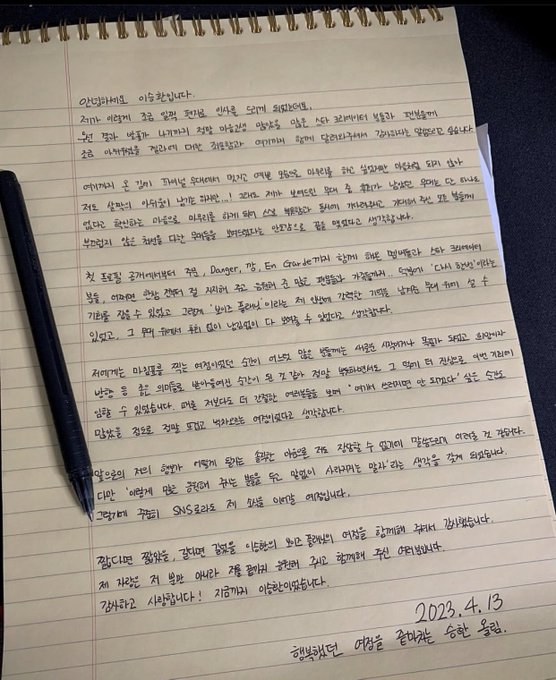 안녕하세요 이승환입니다.
제가 이렇게 조금 일찍 편지로 인사를 드리게 되었는데요.
우선 결과 발표가 나기까지 정말 마음고생 많았을 많은 스타 크리에이터 분들과 팬분들께
조금 아쉬웠을 결과에 대한 죄송함과 여기까지 함께 달려와주셔서 감사하다는 말씀드리고 싶습니다.
여기까지 온 김에 파이널 무대에서 멋지고 예쁜 모습으로 마무리를 하고 싶었지만 마음처럼 되지 않아
저도 살짝의 아쉬움이 남기는 하지만...! 그래도 제가 보여드린 무대 중 후회가 남았던 무대는 단 하나도
없다고 확신하는 마음으로 마무리를 하게 되어 스스로 뿌듯함과 동시에 기다려주고 기대해 주신 모든 분들께
부끄럽지 않은 최선을 다한 무대들을 보여드렸다는 안도감으로 끝을 맺었다고 생각합니다.
첫 프로필 공개에서부터 주문, Danger, 깡, En Garde까지 함께 해온 멤버들과 스타 크리에이터
분들, 어쩌면 한참 전부터 절 지지해 주고 응원해 준 많은 팬분들과 가족들까지, 덕분에 '다시 한번'이라는
기회를 잡을 수 있었고 그렇게 '보이즈 플래닛'이라는 제 인생에 강력한 기억을 남겨준 무대 위에 설 수
있었고, 그 무대 위에서 후회 없이 남김없이 다 보여줄 수 있었다고 생각합니다.
저에게는 마침표를 찍는 여정이었던 순간이 어느덧 많은 분들께는 새로운 시작이거나 목표가 되었고 희망이자
방향 등 좋은 의미들로 받아들여진 순간이 된 것 같아 정말 뿌듯하면서도, 그 덕에 더 진심으로 이번 기회에
임할 수 있었습니다. 때론 저보다도 더 간절한 여러분들을 보며 '여기서 쓰러지면 안 되겠다' 싶은 순간도
많았을 정도로 정말 뜨겁고 벅차오르는 여정이었다고 생각합니다.
앞으로의 저의 행보가 어떻게 될지는 솔직한 마음으로 저도 장담할 수 없기에 말씀드리기 어려울 것 같습니다.
다만 '이렇게 많은 응원해 주시는 분들을 두고 말없이 사라지지는 말자'라는 생각을 갖게 되었습니다.
그렇기에 꾸준히 SNS로라도 제 소식을 이어갈 예정입니다.
짧다면 짧았을, 길다면 길었을 이승환의 보이즈 플래닛의 여정을 함께해 주셔서 감사했습니다.
제 자랑은 저 뿐만 아니라 저를 끝까지 응원해 주시고 함께해 주신 여러분입니다.
감사하고 사랑합니다! 지금까지 이승환이었습니다.
2023.4.13
행복했던 여정을 끝마치는 승환 올림.